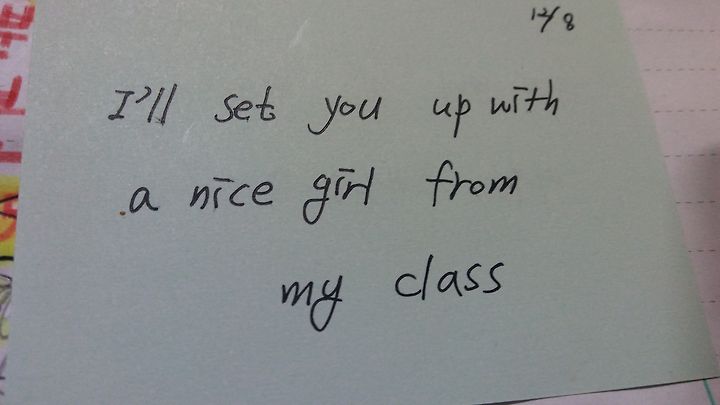 12/8
I'll set you up with
a nice girl from
my class